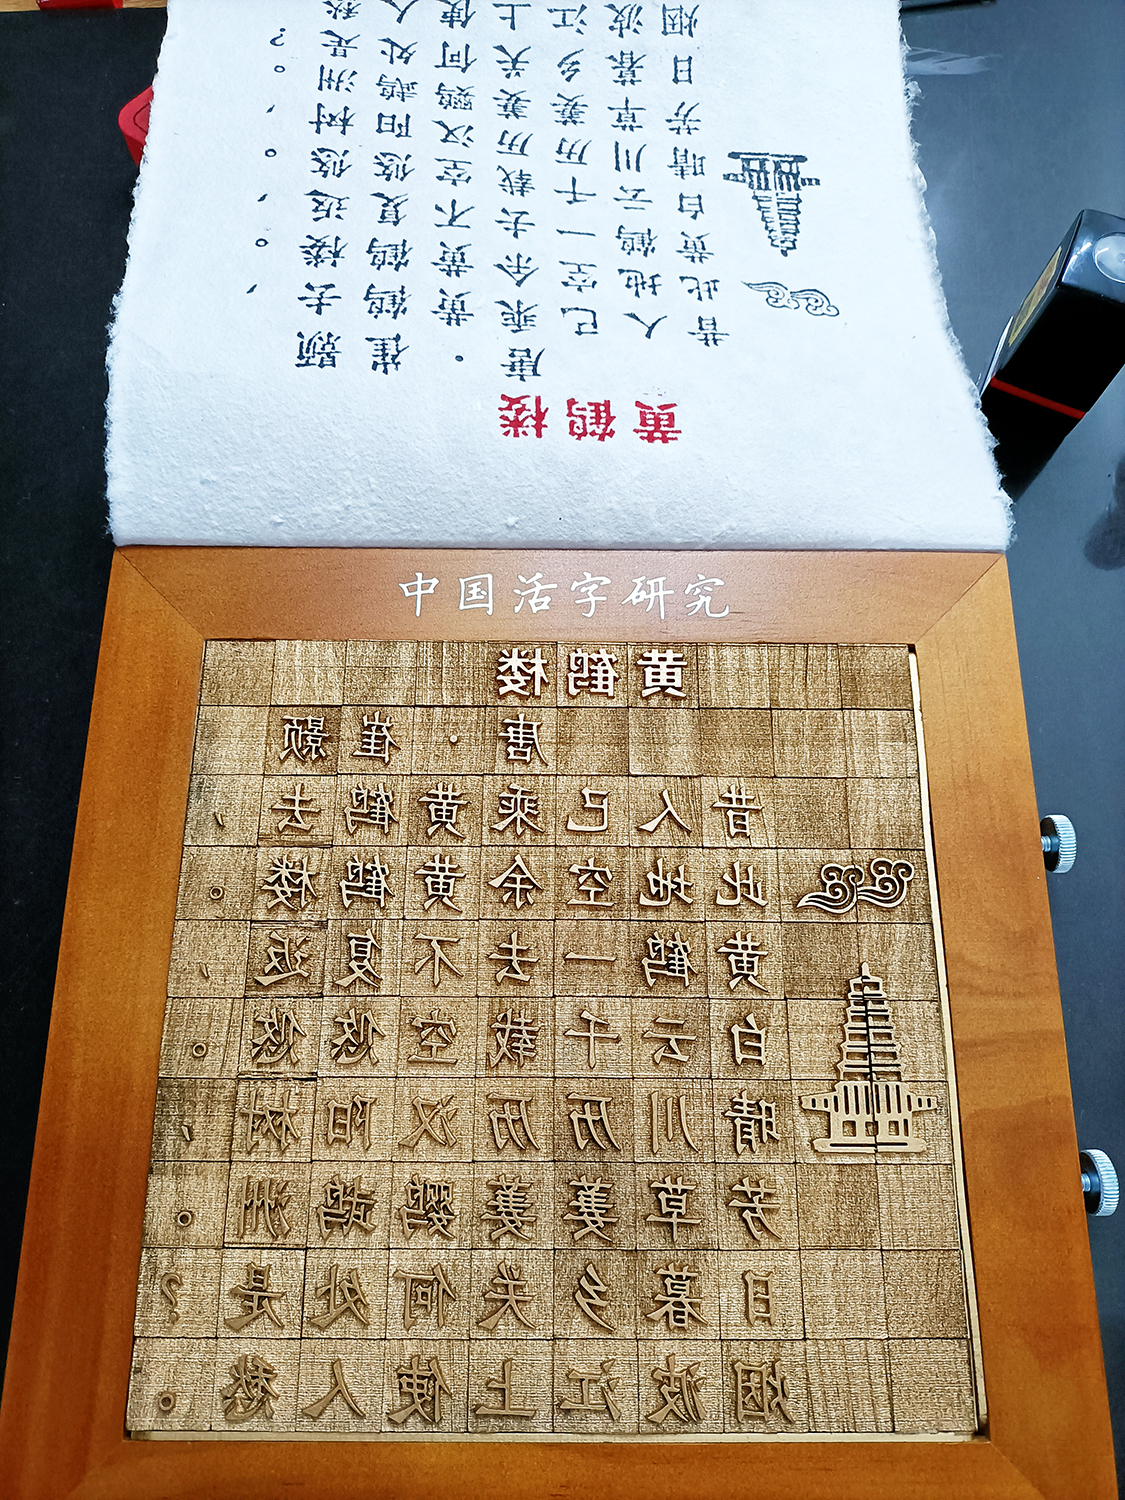 黄鹤楼
唐·崔颢
昔人已乘黄鹤去，
此地空余黄鹤楼。
黄鹤一去不复返，
白云千载空悠悠。
晴川历历汉阳树，
芳草萋萋鹦鹉洲。
日暮乡关何处是？
烟波江上使人愁
中国活字研究
黄鹤楼
唐·崔颢
昔人已乘黄鹤去，
此地空余黄鹤楼。
黄鹤一去不复返，
白云千载空悠悠。
晴川历历汉阳树，
芳草萋萋鹦鹉洲。
日暮乡关何处是？
烟波江上使人愁。